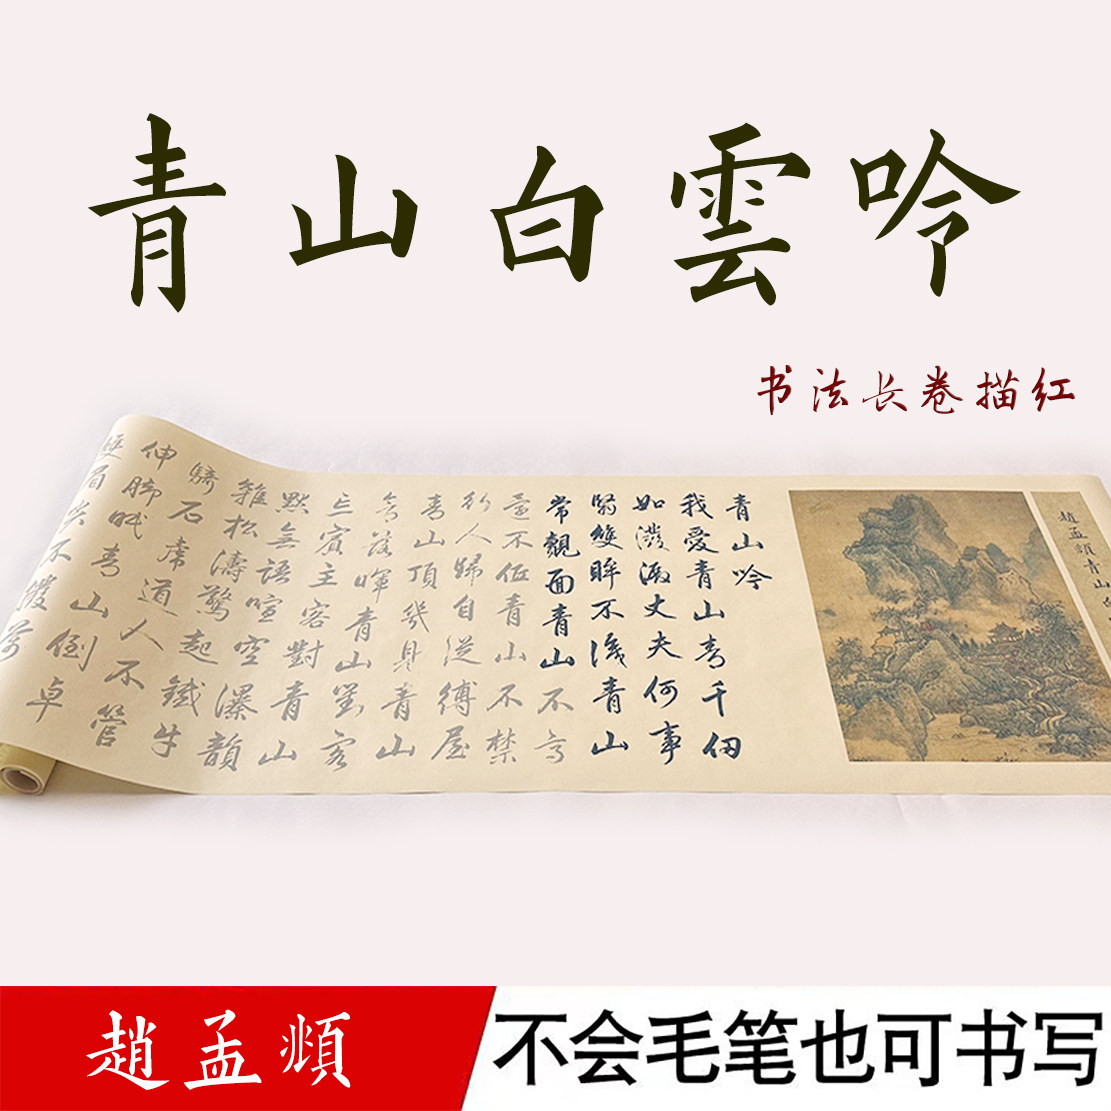 青山白雲吟
书法长卷描红
趙孟頫青山
青山吟
我愛青山青千仞
如潑丈夫何事
緊雙眸不淺青山
常覿面青山不高
還不低青山不禁
行人歸自從縛屋
青山頂幾見青山
含落暉青山對客
忘賓主客對青山
默無語喧空瀑韻
雜松濤驚起鐵牛
騎石虎道人不管
伸脚眠青山倒卓
眉尖不
趙孟頫
不会毛笔也可书写